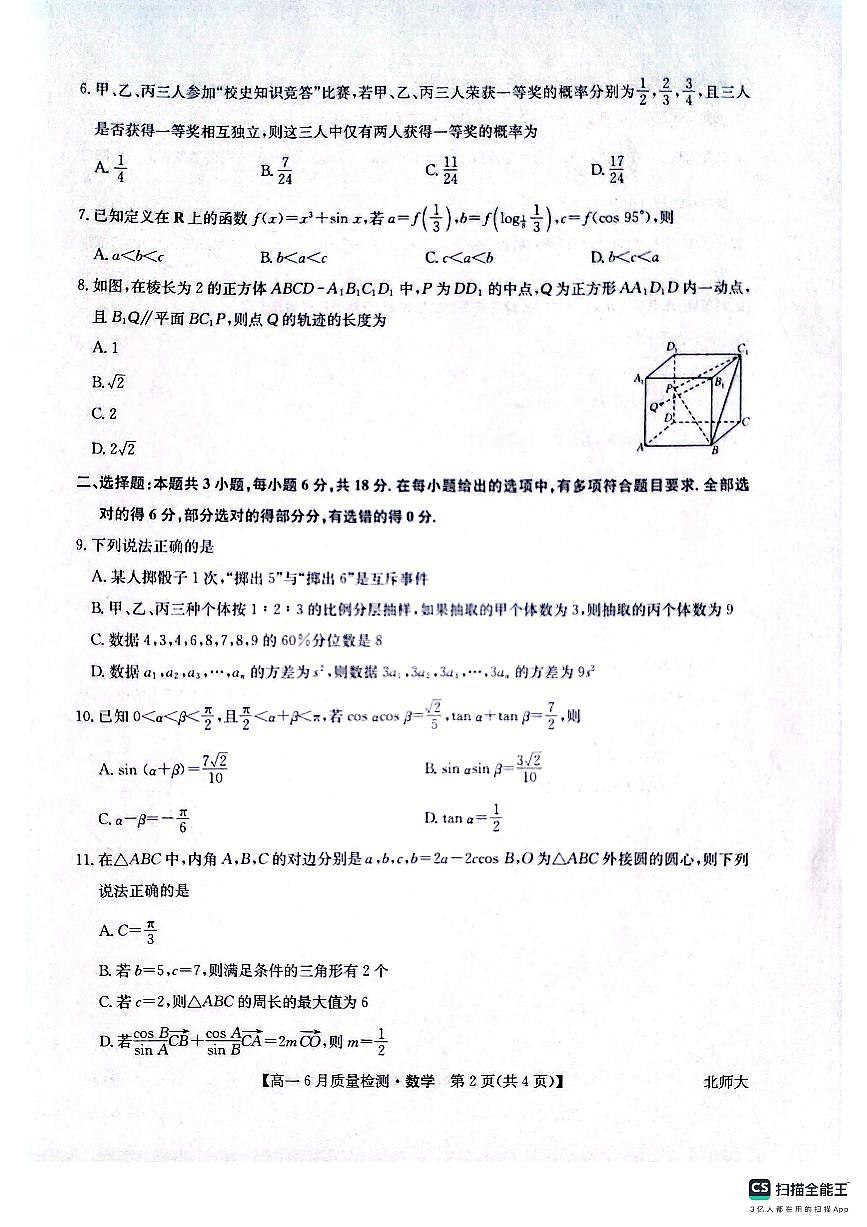 6. 甲、乙、丙三人参加“校史知识竞答”比赛,若甲、乙、丙三人荣获一等奖的概率分别为1/2,2/3,3/4,且三人
是否获得一等奖相互独立,则这三人中仅有两人获得一等奖的概率为
A. 1/4 B. 7/24 C. 11/24 D. 17/24
7. 已知定义在 R 上的函数 f(x)=x³+sin x,若 a=f(1/3),b=f(log_{1/8} 1/3),c=f(cos 95°),则
A. a<b<c B. b<a<c C. c<a<b D. b<c<a
8. 如图,在棱长为 2 的正方体 ABCD-A₁B₁C₁D₁ 中,P 为 DD₁ 的中点,Q 为正方形 AA₁D₁D 内一动点,
且 B₁Q∥平面 BC₁P,则点 Q 的轨迹的长度为
A. 1
B. √2
C. 2
D. 2√2
D₁ C₁
A₁ B₁
P
Q
D C
A B
二、选择题:本题共 3 小题,每小题 6 分,共 18 分. 在每小题给出的选项中,有多项符合题目要求. 全部选
对的得 6 分,部分选对的得部分分,有选错的得 0 分.
9. 下列说法正确的是
A. 某人掷骰子 1 次,“掷出 5”与“掷出 6”是互斥事件
B. 甲、乙、丙三种个体按 1∶2∶3 的比例分层抽样,如果抽取的甲个体数为 3,则抽取的丙个体数为 9
C. 数据 4,3,4,6,8,7,8,9 的 60%分位数是 8
D. 数据 a₁,a₂,a₃,…,aₙ 的方差为 s²,则数据 3a₁,3a₂,3a₃,…,3aₙ 的方差为 9s²
10. 已知 0<α<β<π/2,且π/2<α+β<π,若 cos αcos β=√2/5,tan α+tan β=7/2,则
A. sin (α+β)=7√2/10 B. sin αsin β=3√2/10
C. α-β=-π/6 D. tan α=1/2
11. 在△ABC 中,内角 A,B,C 的对边分别是 a,b,c,b=2a-2ccos B,O 为△ABC 外接圆的圆心,则下列
说法正确的是
A. C=π/3
B. 若 b=5,c=7,则满足条件的三角形有 2 个
C. 若 c=2,则△ABC 的周长的最大值为 6
D. 若cos B/sin A CB→+cos A/sin B CA→=2m CO→,则 m=1/2
【高一 6 月质量检测·数学 第 2 页(共 4 页)】 北师大
CS 扫描全能王
3亿人都在用的扫描App